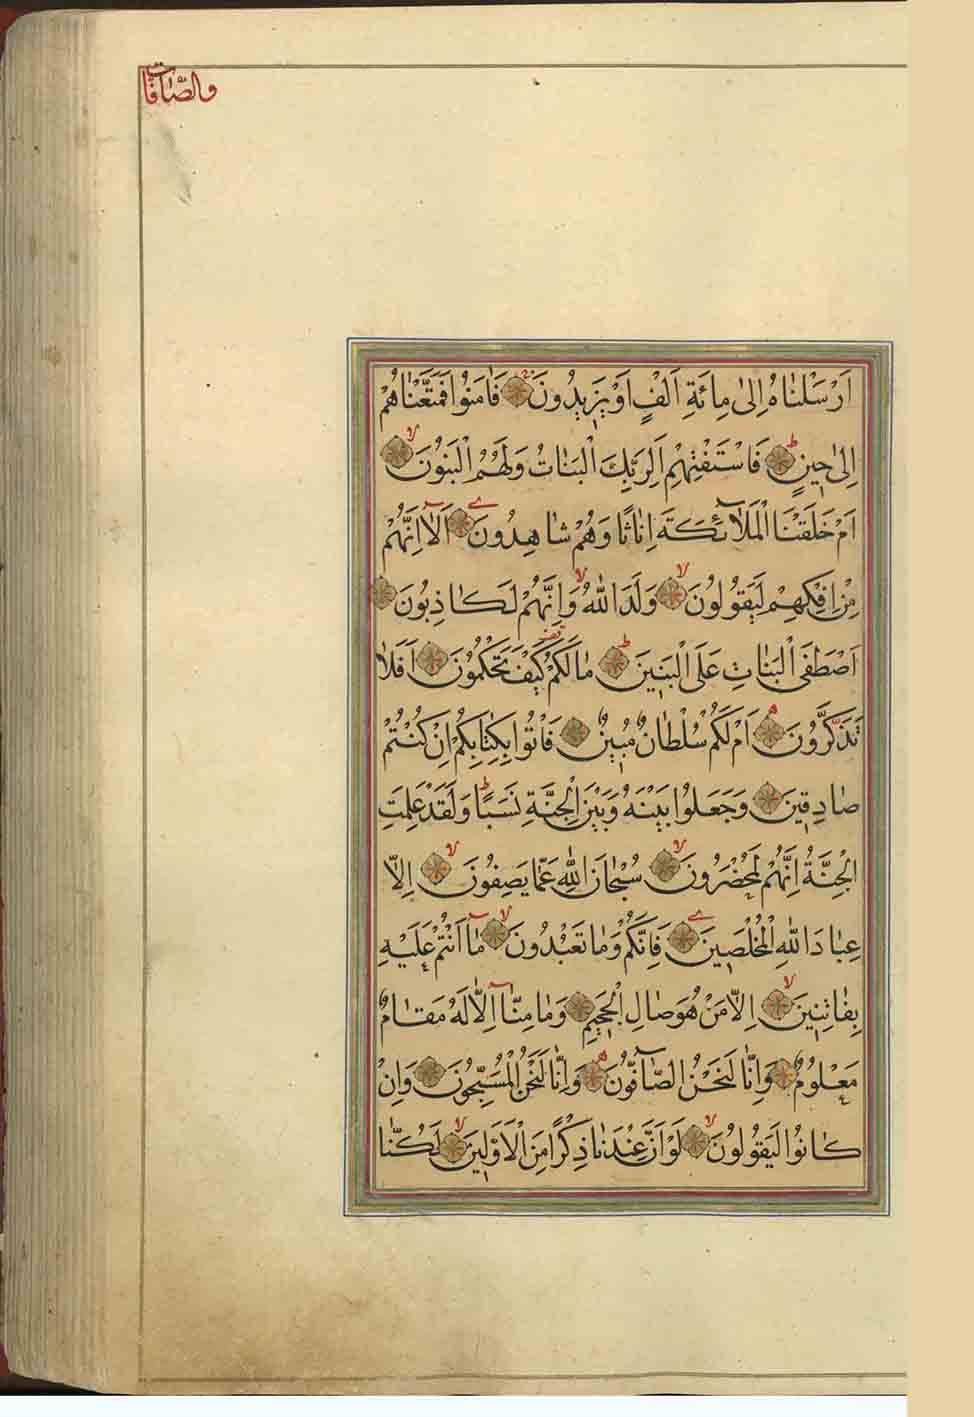 والصّافات
اَرْسَلْنٰاهُ اِلىٰ مِائَةِ اَلْفٍ اَوْ يَزِيدُونَ فَاٰمَنُوا فَمَتَّعْنٰاهُمْ
اِلىٰ حِينٍ فَاسْتَفْتِهِمْ اَلِرَبِّكَ الْبَنٰاتُ وَلَهُمُ الْبَنُونَ
اَمْ خَلَقْنَا الْمَلآئِكَةَ اِنٰاثًا وَهُمْ شٰاهِدُونَ اَلآ اِنَّهُمْ
مِنْ اِفْكِهِمْ لَيَقُولُونَ وَلَدَ اللهُ وَاِنَّهُمْ لَكٰاذِبُونَ
اَصْطَفَى الْبَنٰاتِ عَلَى الْبَنِينَ مٰالَكُمْ كَيْفَ تَحْكُمُونَ اَفَلاٰ
تَذَكَّرُونَ اَمْ لَكُمْ سُلْطٰانٌ مُبِينٌ فَاْتُوا بِكِتٰابِكُمْ اِنْ كُنْتُمْ
صٰادِقِينَ وَجَعَلُوا بَيْنَهُ وَبَيْنَ الْجِنَّةِ نَسَبًا وَلَقَدْ عَلِمَتِ
الْجِنَّةُ اِنَّهُمْ لَمُحْضَرُونَ سُبْحٰانَ اللهِ عَمّٰا يَصِفُونَ اِلاّ
عِبٰادَ اللهِ الْمُخْلَصِينَ فَاِنَّكُمْ وَمٰا تَعْبُدُونَ مٰآ اَنْتُمْ عَلَيْهِ
بِفٰاتِنِينَ اِلاّ مَنْ هُوَ صٰالِ الْجَحِيمِ وَمٰا مِنّٰآ اِلاّٰ لَهُ مَقٰامٌ
مَعْلُومٌ وَاِنّٰا لَنَحْنُ الصّٰآفُّونَ وَاِنّٰا لَنَحْنُ الْمُسَبِّحُونَ وَاِنْ
كٰانُوا لَيَقُولُونَ لَوْ اَنَّ عِنْدَنٰا ذِكْرًا مِنَ الْاَوَّلِينَ لَكُنّٰا